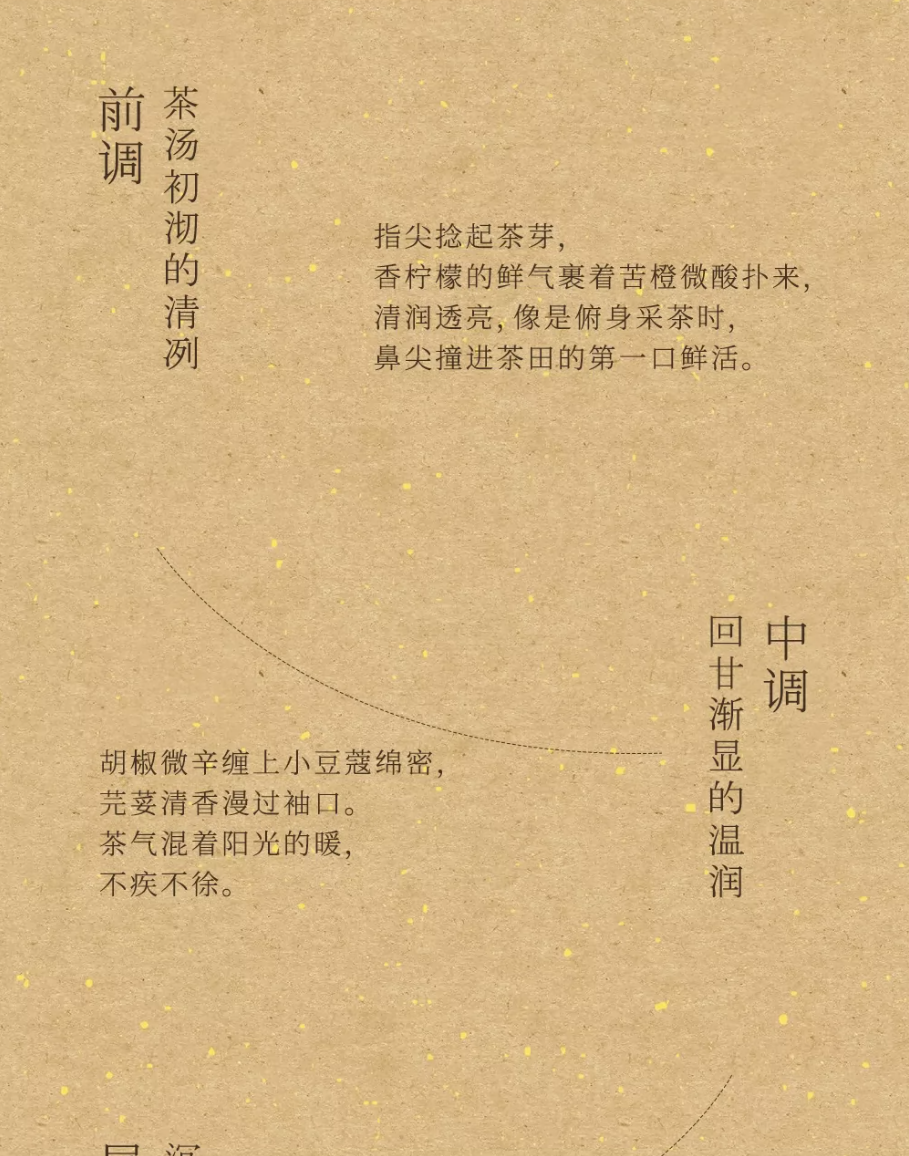 前调
茶汤初沏的清冽
指尖捻起茶芽，
香柠檬的鲜气裹着苦橙微酸扑来，
清润透亮，像是俯身采茶时，
鼻尖撞进茶田的第一口鲜活。
中调
回甘渐显的温润
胡椒微辛缠上小豆蔻绵密，
芫荽清香漫过袖口。
茶气混着阳光的暖，
不疾不徐。